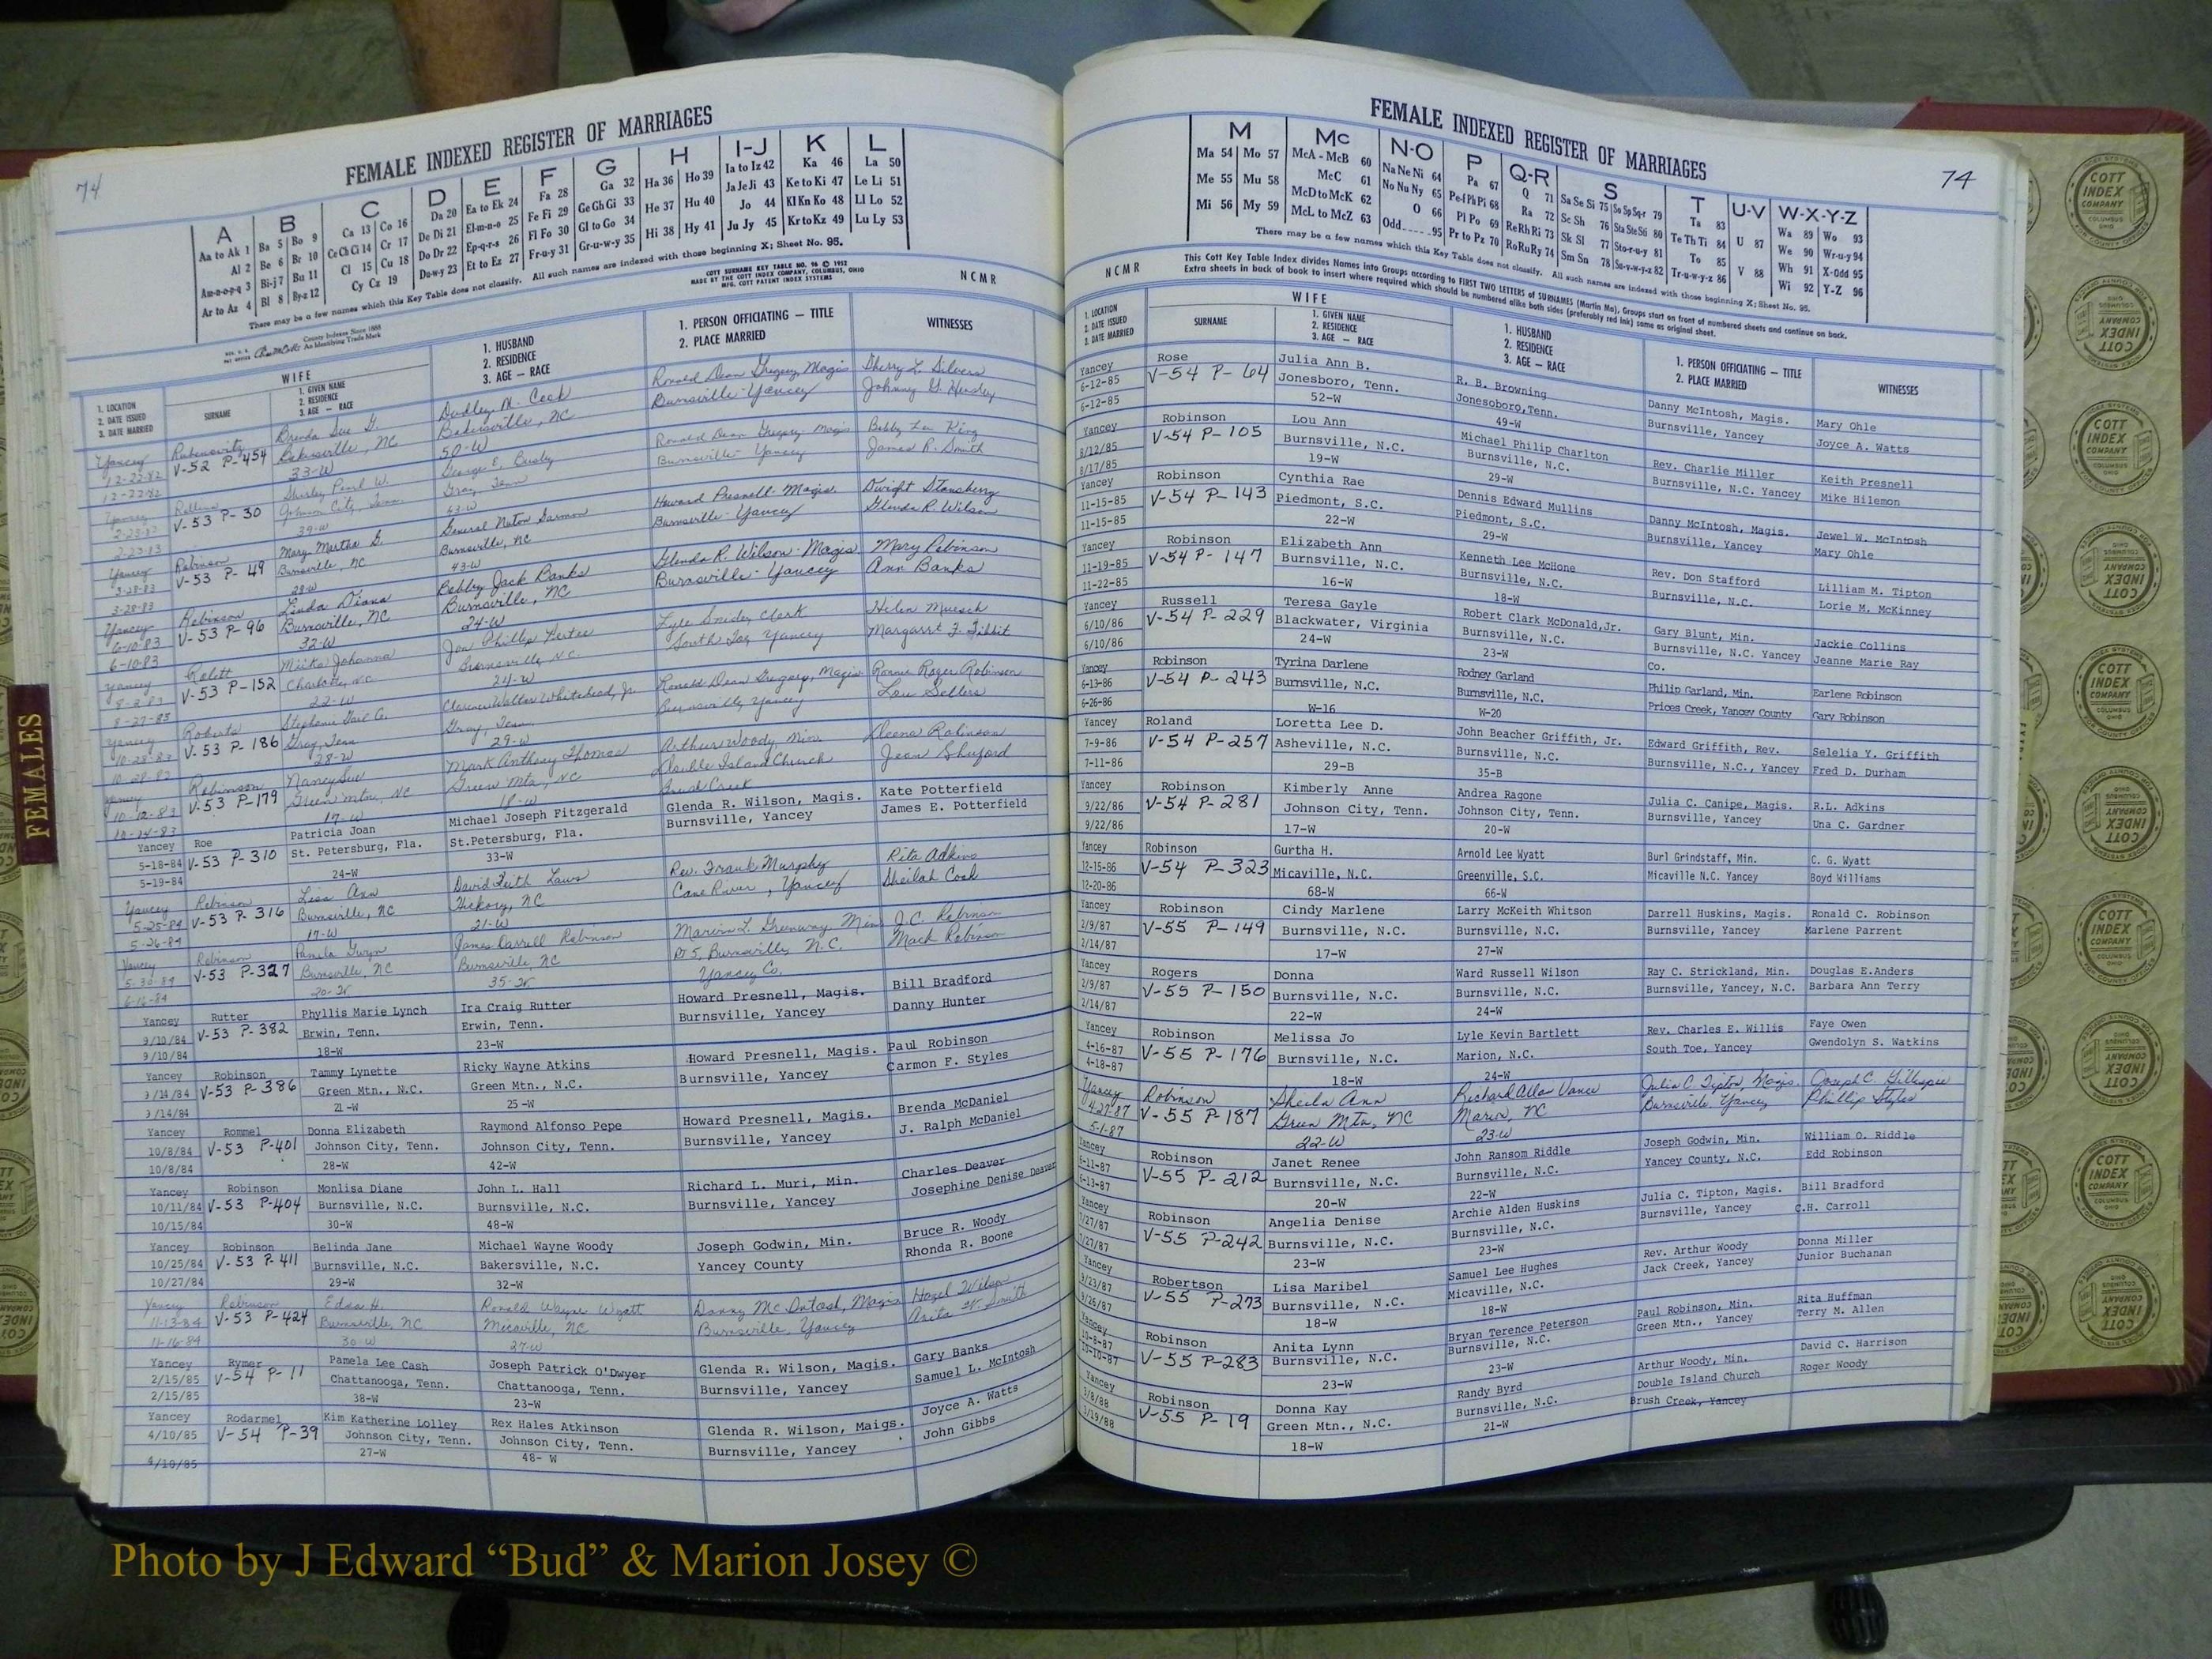 74
FEMALE INDEXED REGISTER OF MARRIAGES
A B C D E F G H I-J K L
Aa to Ak 1 Ba 5 Bo 9 Ca 13 Co 16 Da 20 Ea to Ek 24 Fa 28 Ga 32 Ha 36 Ho 39 Ia to Iz 42 Ka 46 La 50
Al 2 Be 6 Br 10 Ce Ch Ci 14 Cr 17 De Di 21 El-m-n-o 25 Fe Fi 29 Ge Gh Gi 33 He 37 Hu 40 Ja Je Ji 43 Ke to Ki 47 Le Li 51
Am-n-o-p-q 3 Bi-j 7 Bu 11 Cl 15 Cu 18 Do Dr 22 Ep-q-r-s 26 Fl Fo 30 Gl to Go 34 Hi 38 Hy 41 Jo 44 Kl Kn Ko 48 Ll Lo 52
Ar to Az 4 Bl 8 By-z 12 Cy Cz 19 Du-w-y 23 Et to Ez 27 Fr-u-y 31 Gr-u-w-y 35 Ju Jy 45 Kr to Kz 49 Lu Ly 53
There may be a few names which this Key Table does not classify. All such names are indexed with those beginning X; Sheet No. 95.
COTT SURNAME KEY TABLE NO. 96 © 1952
MADE BY THE COTT INDEX COMPANY, COLUMBUS, OHIO
MFG. COTT PATENT INDEX SYSTEMS
NCMR
County Indexes Since 1888
An Identifying Trade Mark
WIFE
1. LOCATION
2. DATE ISSUED
3. DATE MARRIED
SURNAME
1. GIVEN NAME
2. RESIDENCE
3. AGE — RACE
1. HUSBAND
2. RESIDENCE
3. AGE — RACE
1. PERSON OFFICIATING — TITLE
2. PLACE MARRIED
WITNESSES
Yancey Brenda Sue G. Dudley M. Cook Ronald Dean Gregory Magis Sherry L. Silvers
12-22-82 V-52 P-454 Bakersville, NC Bakersville, NC Burnsville-Yancey Johnny G. Hensley
12-22-82 33-W 50-W
Yancey Shirley Pearl W. George E. Busby Ronald Dean Gregory Magis Bobby Lee King
V-53 P-30 Johnson City, Tenn Gray, Tenn Burnsville-Yancey James R. Smith
39-W 43-W
Yancey Robinson Mary Martha G. General Howard Presnell-Magis. Dwight Stansberry
3-28-83 V-53 P-49 Burnsville, NC Burnsville, NC Burnsville-Yancey Glenda R. Wilson
3-28-83 28-W 43-W
Yancey Robinson Linda Diana Bobby Jack Banks Glenda R. Wilson-Magis. Mary Robinson
6-10-83 V-53 P-96 Burnsville, NC Burnsville, NC Burnsville-Yancey Ann Banks
6-10-83 32-W 24-W
Yancey Johanna Jon Phillip Lyle Snider, Clerk Helen
V-53 P-152 Charlotte, NC Burnsville, N.C. South Toe, Yancey Margaret F.
8-27-83 22-W 24-W
Yancey Roberts Stephanie Gail C. Clarence Walter Whitehead, Jr. Ronald Dean Gregory, Magis. Ronnie Roger Robinson
10-28-83 V-53 P-186 Gray, Tenn Gray, Tenn. Burnsville, Yancey Lou Sellers
28-W 29-W
Yancey Robinson Nancy Sue Mark Anthony Thomas Arthur Woody, Min. Robinson
10-12-83 V-53 P-179 Green Mtn, NC Green Mtn, NC Double Island Church Jean Shuford
10-14-83 17-W 18-W
Yancey Roe Patricia Joan Michael Joseph Fitzgerald Glenda R. Wilson, Magis. Kate Potterfield
5-18-84 V-53 P-310 St. Petersburg, Fla. St.Petersburg, Fla. Burnsville, Yancey James E. Potterfield
5-19-84 24-W 33-W
Yancey Robinson Lisa Ann David Keith Laws Rev. Frank Murphy Rita Adkins
5-25-84 V-53 P-316 Burnsville, NC Hickory, NC Cane River, Yancey Sheilah Cook
5-26-84 17-W 21-W
Yancey Robinson Pamela Gwyn James Darrell Robinson Marvin L. Greenway Min J.C. Robinson
5-30-84 V-53 P-327 Burnsville, NC Burnsville, NC Rt 5, Burnsville, N.C. Mack Robinson
6-16-84 20-W 35-W Yancey Co.
Yancey Rutter Phyllis Marie Lynch Ira Craig Rutter Howard Presnell, Magis. Bill Bradford
9/10/84 V-53 P-382 Erwin, Tenn. Erwin, Tenn. Burnsville, Yancey Danny Hunter
9/10/84 18-W 23-W
Yancey Robinson Tammy Lynette Ricky Wayne Atkins Howard Presnell, Magis. Paul Robinson
9/14/84 V-53 P-386 Green Mtn., N.C. Green Mtn., N.C. Burnsville, Yancey Carmon F. Styles
9/14/84 21-W 25-W
Yancey Rommel Donna Elizabeth Raymond Alfonso Pepe Howard Presnell, Magis. Brenda McDaniel
10/8/84 V-53 P-401 Johnson City, Tenn. Johnson City, Tenn. Burnsville, Yancey J. Ralph McDaniel
10/8/84 28-W 42-W
Yancey Robinson Monlisa Diane John L. Hall Richard L. Muri, Min. Charles Deaver
10/11/84 V-53 P-404 Burnsville, N.C. Burnsville, N.C. Burnsville, Yancey Josephine Denise Deaver
10/15/84 30-W 48-W
Yancey Robinson Belinda Jane Michael Wayne Woody Joseph Godwin, Min. Bruce R. Woody
10/25/84 V-53 P-411 Burnsville, N.C. Bakersville, N.C. Yancey County Rhonda R. Boone
10/27/84 29-W 32-W
Yancey Robinson Edna H. Ronald Wayne Wyatt Danny McIntosh, Magis Hazel Wilson
11-13-84 V-53 P-424 Burnsville, NC Micaville, NC Burnsville, Yancey Anita W. Smith
11-16-84 30-W 27-W
Yancey Rymer Pamela Lee Cash Joseph Patrick O'Dwyer Glenda R. Wilson, Magis. Gary Banks
2/15/85 V-54 P-11 Chattanooga, Tenn. Chattanooga, Tenn. Burnsville, Yancey Samuel L. McIntosh
2/15/85 38-W 23-W
Yancey Rodarmel Kim Katherine Lolley Rex Hales Atkinson Glenda R. Wilson, Maigs. Joyce A. Watts
4/10/85 V-54 P-39 Johnson City, Tenn. Johnson City, Tenn. Burnsville, Yancey John Gibbs
4/10/85 27-W 48- W
FEMALES
FEMALE INDEXED REGISTER OF MARRIAGES
74
M Mc N-O P Q-R S T U-V W-X-Y-Z
Ma 54 Mo 57 McA - McB 60 Na Ne Ni 64 Pa 67 Q 71 Sa Se Si 75 So Sp Sq-r 79 Ta 83 U 87 Wa 89 Wo 93
Me 55 Mu 58 McC 61 No Nu Ny 65 Pe-f Ph Pi 68 Ra 72 Sc Sh 76 Sta Ste Sti 80 Te Th Ti 84 V 88 We 90 Wr-u-y 94
Mi 56 My 59 McD to McK 62 O 66 Pl Po 69 Re Rh Ri 73 Sk Sl 77 Sto-r-u-y 81 To 85 Wh 91 X-Odd 95
McL to McZ 63 Odd 95 Pr to Pz 70 Ro Ru Ry 74 Sm Sn 78 Su-v-w-y-z 82 Tr-u-w-y-z 86 Wi 92 Y-Z 96
There may be a few names which this Key Table does not classify. All such names are indexed with those beginning X; Sheet No. 95.
NCMR
This Cott Key Table Index divides Names into Groups according to FIRST TWO LETTERS of SURNAMES (Martin Ma), Groups start on front of numbered sheets and continue on back.
Extra sheets in back of book to insert where required which should be numbered alike both sides (preferably red ink) same as original sheet.
WIFE
1. LOCATION
2. DATE ISSUED
3. DATE MARRIED
SURNAME
1. GIVEN NAME
2. RESIDENCE
3. AGE — RACE
1. HUSBAND
2. RESIDENCE
3. AGE — RACE
1. PERSON OFFICIATING — TITLE
2. PLACE MARRIED
WITNESSES
Yancey Rose Julia Ann B. R. B. Browning Danny McIntosh, Magis. Mary Ohle
6-12-85 V-54 P-64 Jonesboro, Tenn. Jonesoboro,Tenn. Burnsville, Yancey Joyce A. Watts
6-12-85 52-W 49-W
Yancey Robinson Lou Ann Michael Philip Charlton Rev. Charlie Miller Keith Presnell
8/12/85 V-54 P-105 Burnsville, N.C. Burnsville, N.C. Burnsville, N.C. Yancey Mike Hilemon
8/17/85 19-W 29-W
Yancey Robinson Cynthia Rae Dennis Edward Mullins Danny McIntosh, Magis. Jewel W. McIntosh
11-15-85 V-54 P-143 Piedmont, S.C. Piedmont, S.C. Burnsville, Yancey Mary Ohle
11-15-85 22-W 29-W
Yancey Robinson Elizabeth Ann Kenneth Lee McHone Rev. Don Stafford Lilliam M. Tipton
11-19-85 V-54 P-147 Burnsville, N.C. Burnsville, N.C. Burnsville, N.C. Lorie M. McKinney
11-22-85 16-W 18-W
Yancey Russell Teresa Gayle Robert Clark McDonald,Jr. Gary Blunt, Min. Jackie Collins
6/10/86 V-54 P-229 Blackwater, Virginia Burnsville, N.C. Burnsville, N.C. Yancey Jeanne Marie Ray
6/10/86 24-W 23-W Co.
Yancey Robinson Tyrina Darlene Rodney Garland Philip Garland, Min. Earlene Robinson
6-13-86 V-54 P-243 Burnsville, N.C. Burnsville, N.C. Prices Creek, Yancey County Gary Robinson
6-26-86 W-16 W-20
Yancey Roland Loretta Lee D. John Beacher Griffith, Jr. Edward Griffith, Rev. Selelia Y. Griffith
7-9-86 V-54 P-257 Asheville, N.C. Burnsville, N.C. Burnsville, N.C., Yancey Fred D. Durham
7-11-86 29-B 35-B
Yancey Robinson Kimberly Anne Andrea Ragone Julia C. Canipe, Magis. R.L. Adkins
9/22/86 V-54 P-281 Johnson City, Tenn. Johnson City, Tenn. Burnsville, Yancey Una C. Gardner
9/22/86 17-W 20-W
Yancey Robinson Gurtha H. Arnold Lee Wyatt Burl Grindstaff, Min. C. G. Wyatt
12-15-86 V-54 P-323 Micaville, N.C. Greenville, S.C. Micaville N.C. Yancey Boyd Williams
12-20-86 68-W 66-W
Yancey Robinson Cindy Marlene Larry McKeith Whitson Darrell Huskins, Magis. Ronald C. Robinson
2/9/87 V-55 P-149 Burnsville, N.C. Burnsville, N.C. Burnsville, Yancey Marlene Parrent
2/14/87 17-W 27-W
Yancey Rogers Donna Ward Russell Wilson Ray C. Strickland, Min. Douglas E.Anders
2/9/87 V-55 P-150 Burnsville, N.C. Burnsville, N.C. Burnsville, Yancey, N.C. Barbara Ann Terry
2/14/87 22-W 24-W
Yancey Robinson Melissa Jo Lyle Kevin Bartlett Rev. Charles E. Willis Faye Owen
4-16-87 V-55 P-176 Burnsville, N.C. Marion, N.C. South Toe, Yancey Gwendolyn S. Watkins
4-18-87 18-W 24-W
Yancey Robinson Sheila Ann Richard Allan Vance Julia C. Tipton, Magis. Joseph C. Gillespie
4-27-87 V-55 P-187 Green Mtn, NC Marion, NC Burnsville Yancey Phillip Styles
5-1-87 22-W 23-W
Yancey Robinson Janet Renee John Ransom Riddle Joseph Godwin, Min. William O. Riddle
6-11-87 V-55 P-212 Burnsville, N.C. Burnsville, N.C. Yancey County, N.C. Edd Robinson
6-13-87 20-W 22-W
Yancey Robinson Angelia Denise Archie Alden Huskins Julia C. Tipton, Magis. Bill Bradford
7/27/87 V-55 P-242 Burnsville, N.C. Burnsville, N.C. Burnsville, Yancey C.H. Carroll
7/27/87 23-W 23-W
Yancey Robertson Lisa Maribel Samuel Lee Hughes Rev. Arthur Woody Donna Miller
9/23/87 V-55 P-273 Burnsville, N.C. Micaville, N.C. Jack Creek, Yancey Junior Buchanan
9/26/87 18-W 18-W
Yancey Robinson Anita Lynn Bryan Terence Peterson Paul Robinson, Min. Rita Huffman
10-8-87 V-55 P-283 Burnsville, N.C. Burnsville, N.C. Green Mtn., Yancey Terry M. Allen
10-10-87 23-W 23-W
Yancey Robinson Donna Kay Randy Byrd Arthur Woody, Min. David C. Harrison
V-55 P-19 Green Mtn., N.C. Burnsville, N.C. Double Island Church Roger Woody
18-W 21-W Brush Creek, Yancey
COTT INDEX COMPANY COLUMBUS OHIO
Photo by J Edward “Bud” & Marion Josey ©